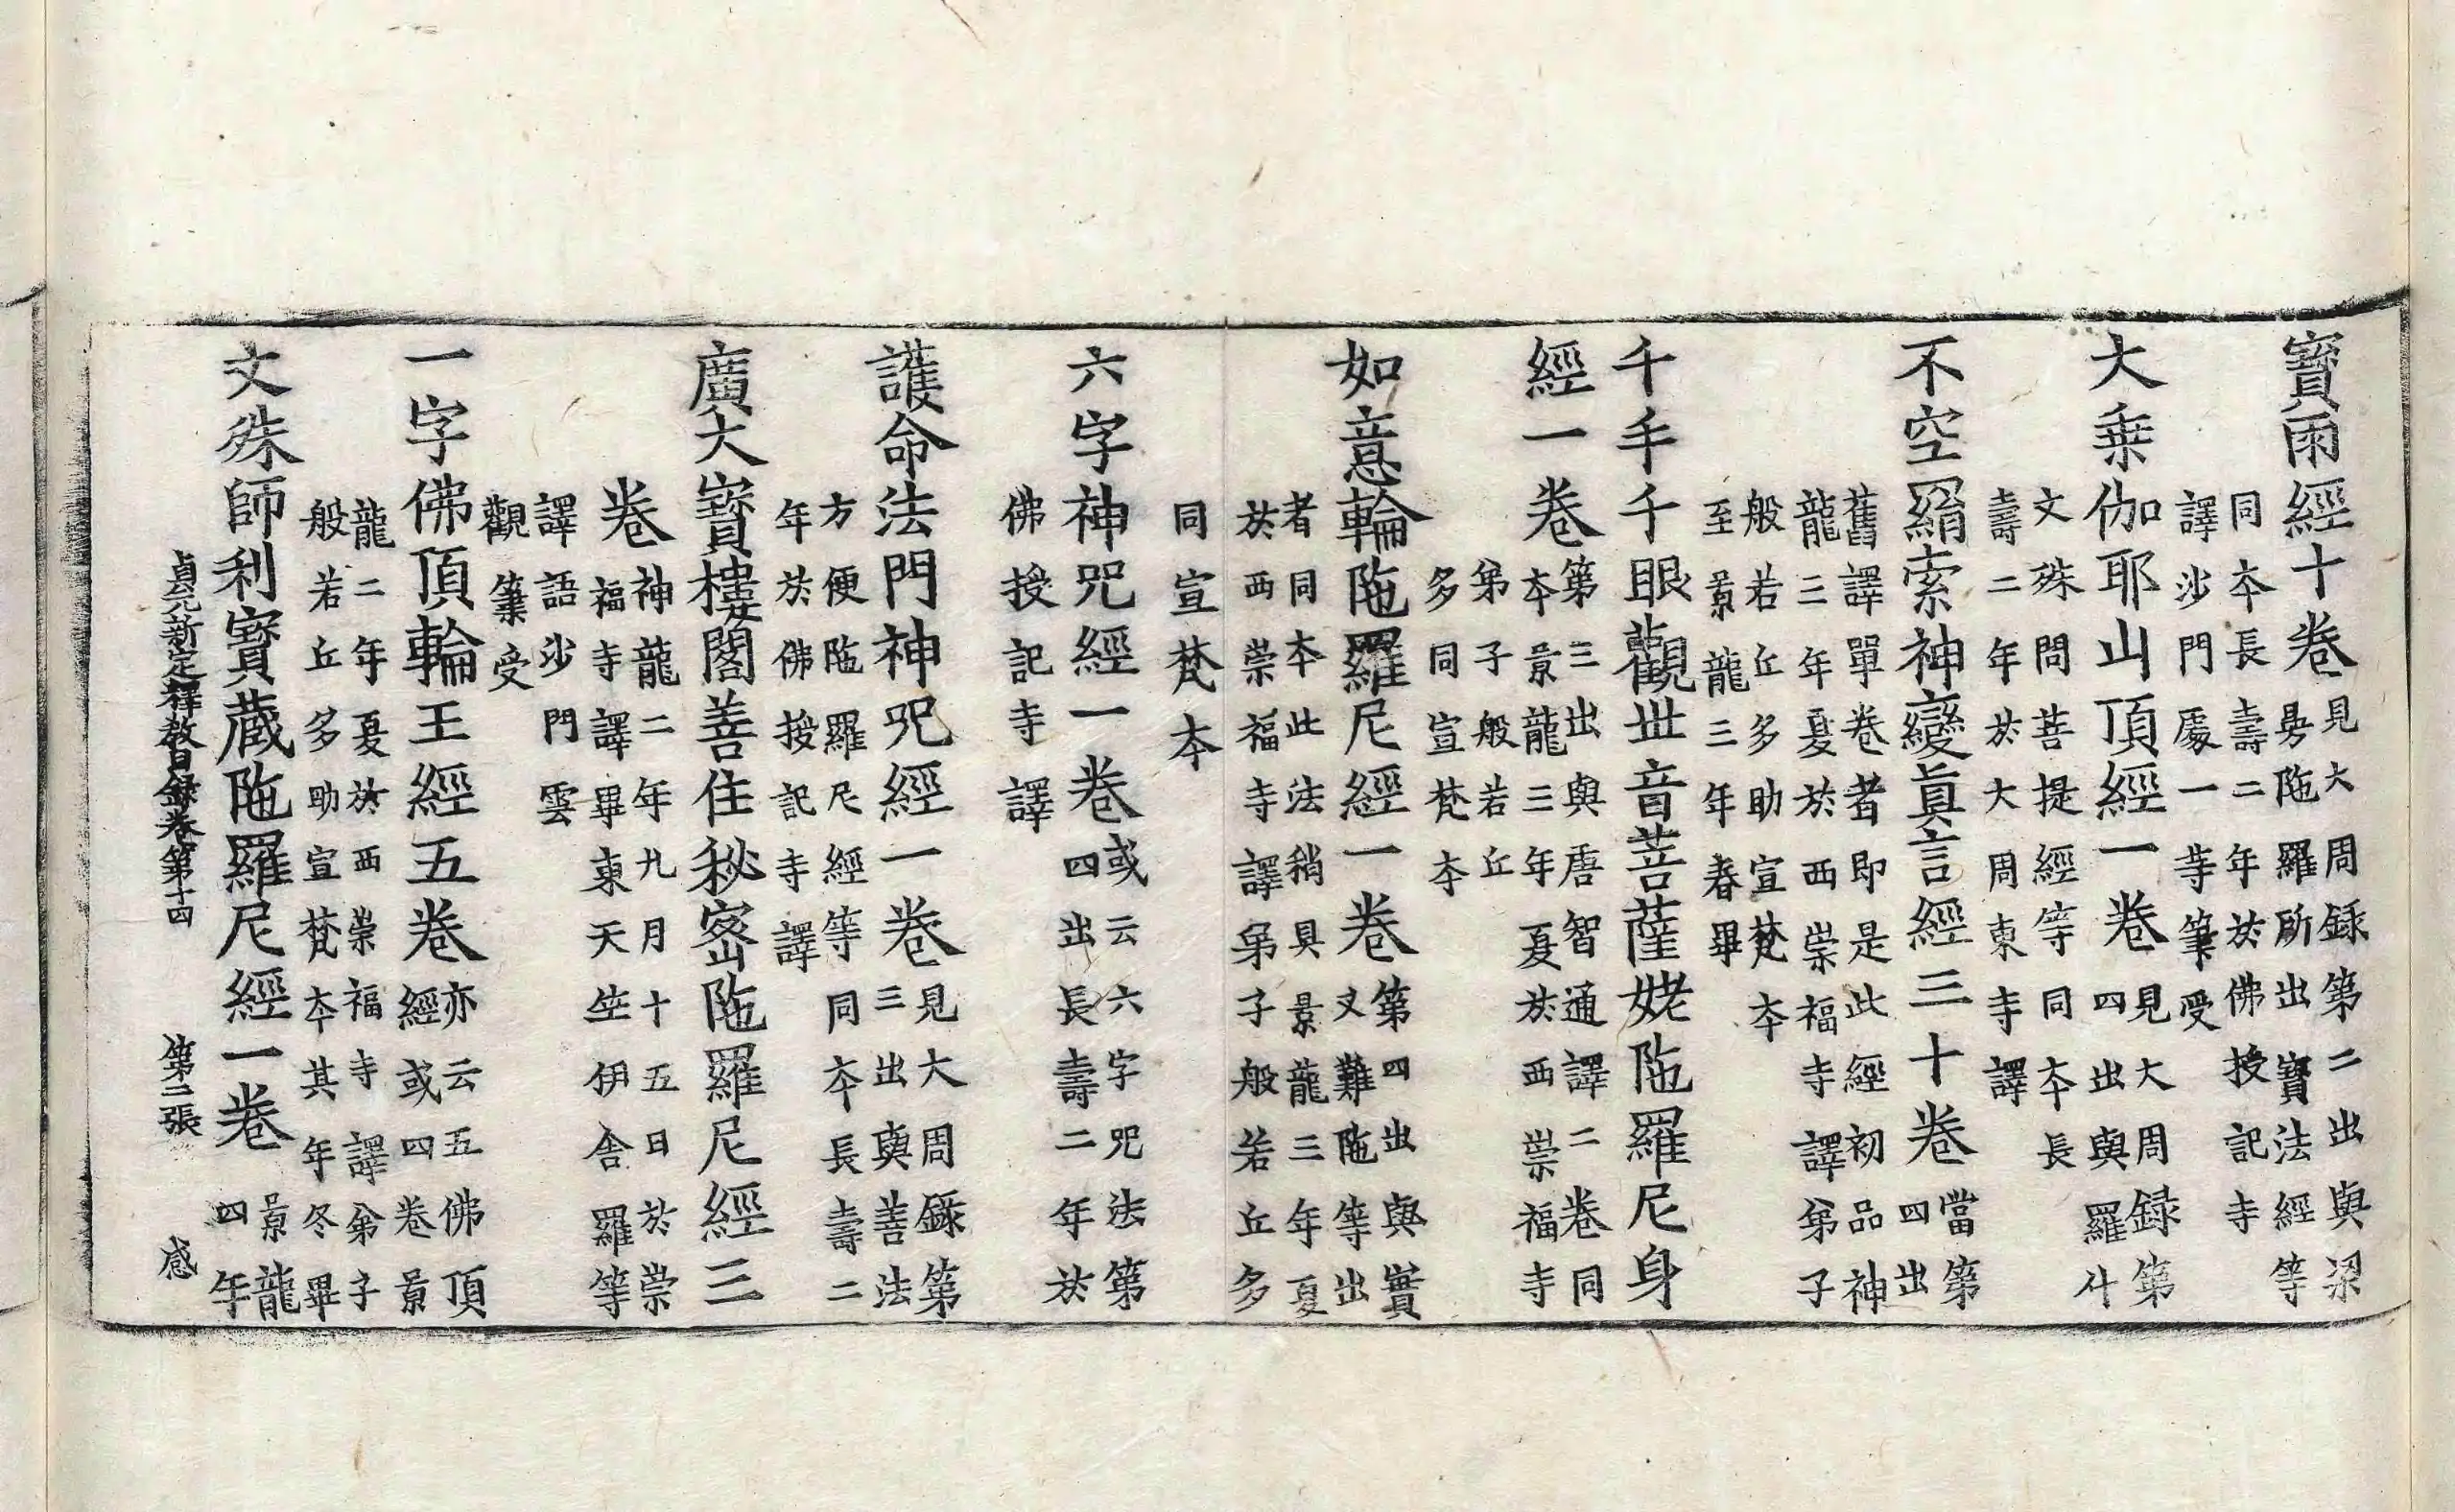 寶雨經十卷
見大周錄第二出與梁
曼陁羅所出寶法經等
同本長壽二年於佛授記寺
譯沙門處一等筆受
大乗伽耶山頂經一卷
見大周録第
四出與羅什
文殊問菩提經等同本長
壽二年於大周東寺譯
不空羂索神變真言經三十卷
當第
四出
舊譯單卷者即是此經初品神
龍三年夏於西崇福寺譯弟子
般若丘多助宣梵本
至景龍三年春畢
千手千眼觀世音菩薩姥陁羅尼身
經一卷
第三出與唐智通譯二卷同
本景龍三年夏於西崇福寺
弟子般若丘
多同宣梵本
如意輪陁羅尼經一卷
第四出與寶
叉難陁等出
者同本此法稍具景龍三年夏
於西崇福寺譯弟子般若丘多
同宣梵本
六字神呪經一卷
或云六字呪法第
四出長壽二年於
佛授記寺譯
護命法門神呪經一卷
見大周錄第
三出與善法
方便陁羅尼經等同本長壽二
年於佛授記寺譯
廣大寶樓閣善住秘密陁羅尼經三
卷
神龍二年九月十五日於崇
福寺譯畢東天竺伊舍羅等
譯語沙門雲
觀筆受
一字佛頂輪王經五卷
亦云五佛頂
經或四卷景
龍二年夏於西崇福寺譯弟子
般若丘多助宣梵本其年冬畢
文殊師利寶蔵陁羅尼經一卷
景龍
四年
貞元新定釋教目録卷第十四 第二張 感